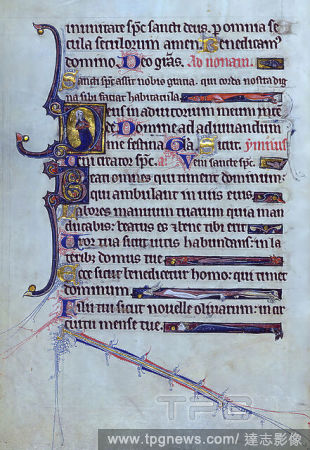 in unitate sp̄c sancti deus. p omnia se
cula seculorum amen. Benedicam᷒
domino. Deo grās. Ad nonam.
Sancti sp̄c assit nobis gratia. qui corda nostra dig
na sibi faciat habitacula.
Deus in adiutorium meum inte
de Domine ad adiuuandum
me festina Gla. Sicut. ymnus
Veni creator sp̄c. a᷒ Veni sancte sp̄c.
Beati omnes qui timent dominum:
qui ambulant in uiis eius
Labores manuum tuarum quia man
ducabis: beatus es ⁊ bene tibi erit
Uxor tua sicut uitis habundans: in la
terib; domus tue
Ecce sicut benedicetur homo: qui timet
dominum
Filii tui sicut nouelle oliuarum: in cir
cuitu mense tue.
TPG
www.tpgnews.com/達志影像